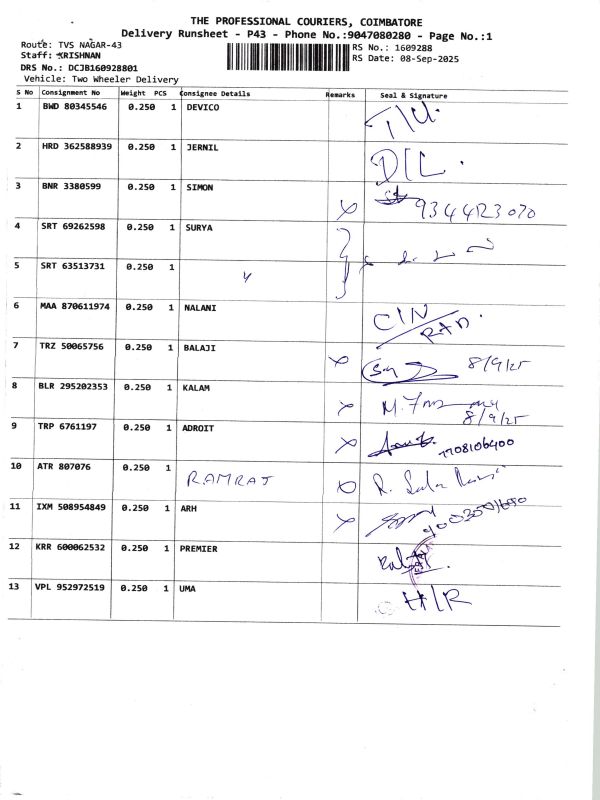 THE PROFESSIONAL COURIERS, COIMBATORE
Delivery Runsheet - P43 - Phone No.:9047080280 - Page No.:1
Route: TVS NAGAR-43
RS No.: 1609288
Staff: KRISHNAN
RS Date: 08-Sep-2025
DRS No.: DCJB160928801
Vehicle: Two Wheeler Delivery
S No Consignment No Weight PCS Consignee Details Remarks Seal & Signature
1 BWD 80345546 0.250 1 DEVICO
2 HRD 362588939 0.250 1 JERNIL D/L.
3 BNR 3380599 0.250 1 SIMON
4 SRT 69262598 0.250 1 SURYA
5 SRT 63513731 0.250 1 "
6 MAA 870611974 0.250 1 NALANI
7 TRZ 50065756 0.250 1 BALAJI 8/9/25
8 BLR 295202353 0.250 1 KALAM 8/9/25
9 TRP 6761197 0.250 1 ADROIT 7708106400
10 ATR 807076 0.250 1 RAMRAJ
11 IXM 508954849 0.250 1 ARH
12 KRR 600062532 0.250 1 PREMIER
13 VPL 952972519 0.250 1 UMA H/R